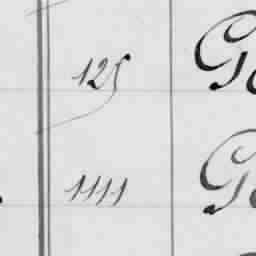 125 Ge
1111 Ge